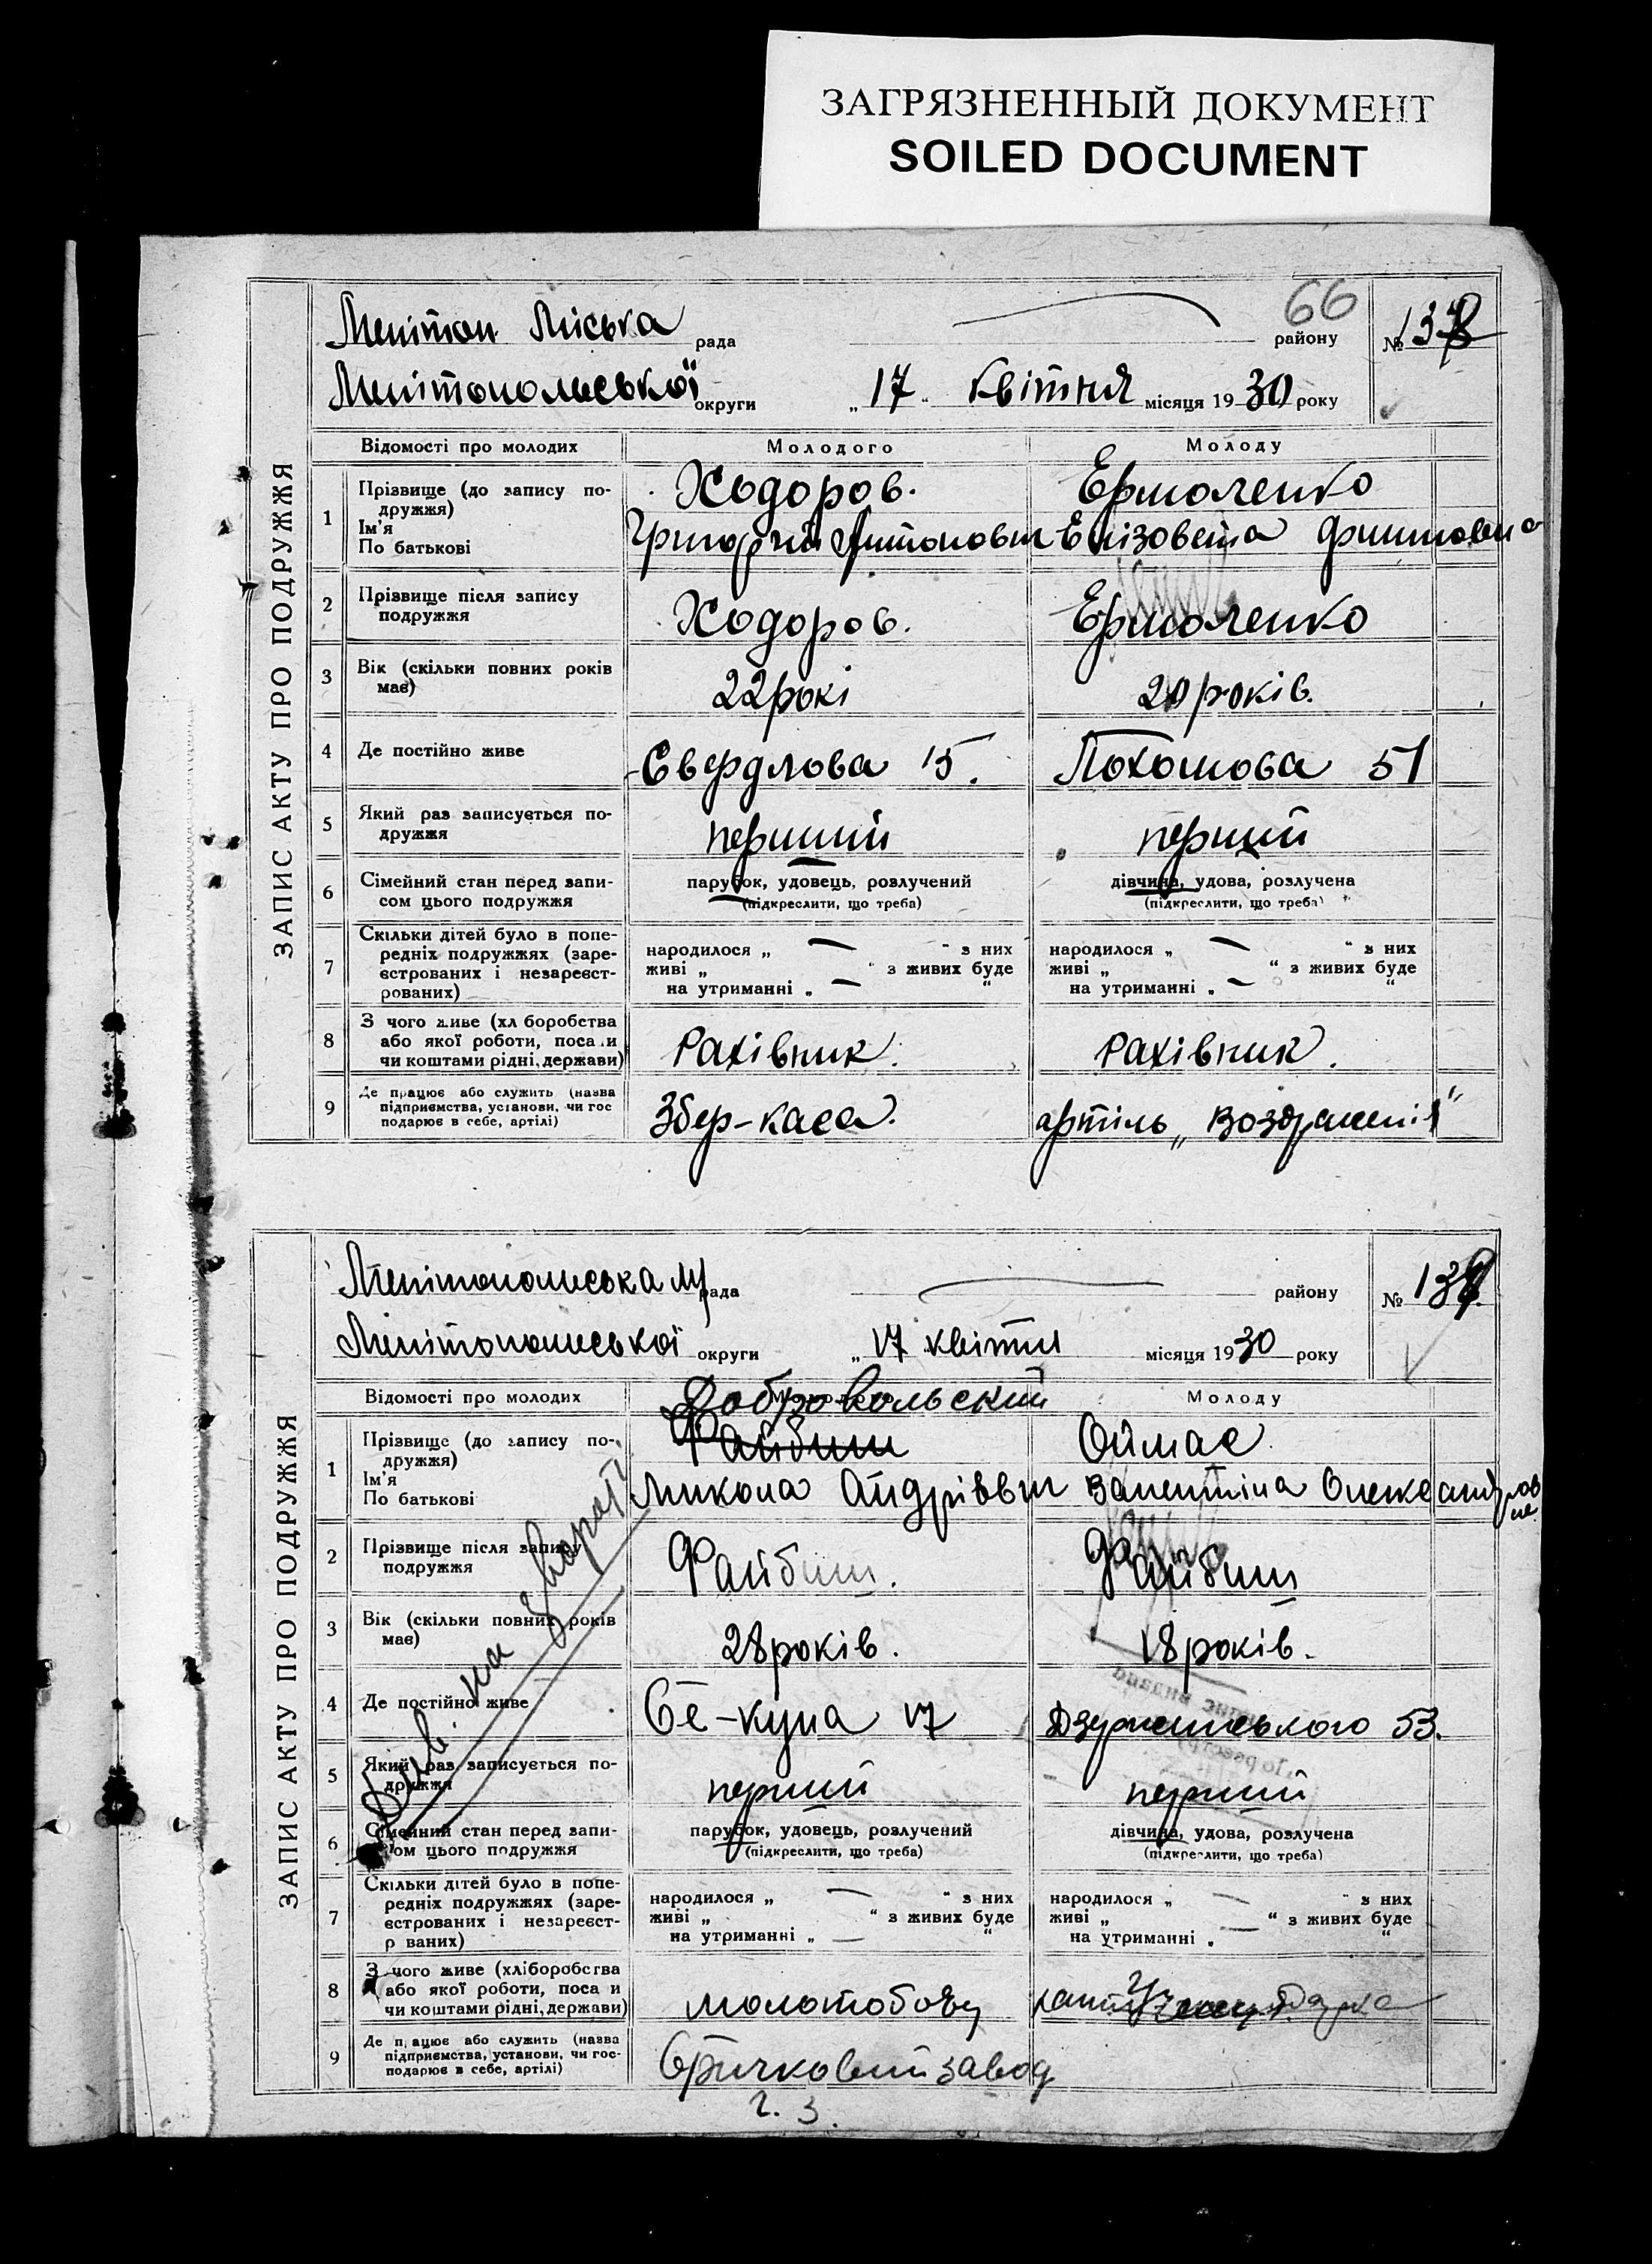 ЗАГРЯЗНЕННЫЙ ДОКУМЕНТ
SOILED DOCUMENT
66
ЗАПИС АКТУ ПРО ПОДРУЖЖЯ
Міська рада району № 137
Мелітопольської округи „17“ квітня місяця 1930 року
Відомості про молодих Молодого Молоду
1 Прізвище (до запису по-
дружжя)
Ім'я
По батькові
Ходоров. Ермоленко
Григорій Антонович Елізовета
2 Прізвище після запису
подружжя
Ходоров. Ермоленко
3 Вік (скільки повних років
має)
22 рокі 20 років.
4 Де постійно живе
Свердлова 15. 51
5 Який раз записується по-
дружжя
перший перший
6 Сімейний стан перед запи-
сом цього подружжя
парубок, удовець, розлучений дівчина, удова, розлучена
(підкреслити, що треба) (підкреслити, що треба)
7 Скільки дітей було в попе-
редніх подружжях (заре-
єстрованих і незареєст-
рованих)
народилося „ — “ з них народилося „ — “ з них
живі „ “ з живих буде живі „ “ з живих буде
на утриманні „ — “ на утриманні „ — “
8 З чого живе (хліборобства
або якої роботи, посади
чи коштами рідні, держави)
Рахівник. Рахівник.
9 Де працює або служить (назва
підприємства, установи, чи гос
подарює в себе, артілі)
Збер-каса. артіль
ЗАПИС АКТУ ПРО ПОДРУЖЖЯ
Мелітопольська м рада району № 138
Мелітопольської округи „17 квітня місяця 1930 року
Відомості про молодих Молоду
Добровольский
1 Прізвище (до запису по-
дружжя)
Ім'я
По батькові
Файбиш Оймас
Микола Андріввич Валентіна Олександровна
2 Прізвище після запису
подружжя
Файбиш. Файбиш
3 Вік (скільки повних років
має)
28 років. 18 років.
Див. на звороті
4 Де постійно живе
17 Дзержинського 53.
5 Який раз записується по-
дружжя
перший перший
6 Сімейний стан перед запи-
сом цього подружжя
парубок, удовець, розлучений дівчина, удова, розлучена
(підкреслити, що треба) (підкреслити, що треба)
7 Скільки дітей було в попе-
редніх подружжях (заре-
єстрованих і незареєст-
р ваних)
народилося „ — “ з них народилося „ — “ з них
живі „ “ з живих буде живі „ “ з живих буде
на утриманні „ — “ на утриманні „ — “
8 З чого живе (хліборобства
або якої роботи, поса и
чи коштами рідні, держави)
молотобоєц
9 Де працює або служить (назва
підприємства, установи, чи гос-
подарює в себе, артілі)
завод
г. 3.